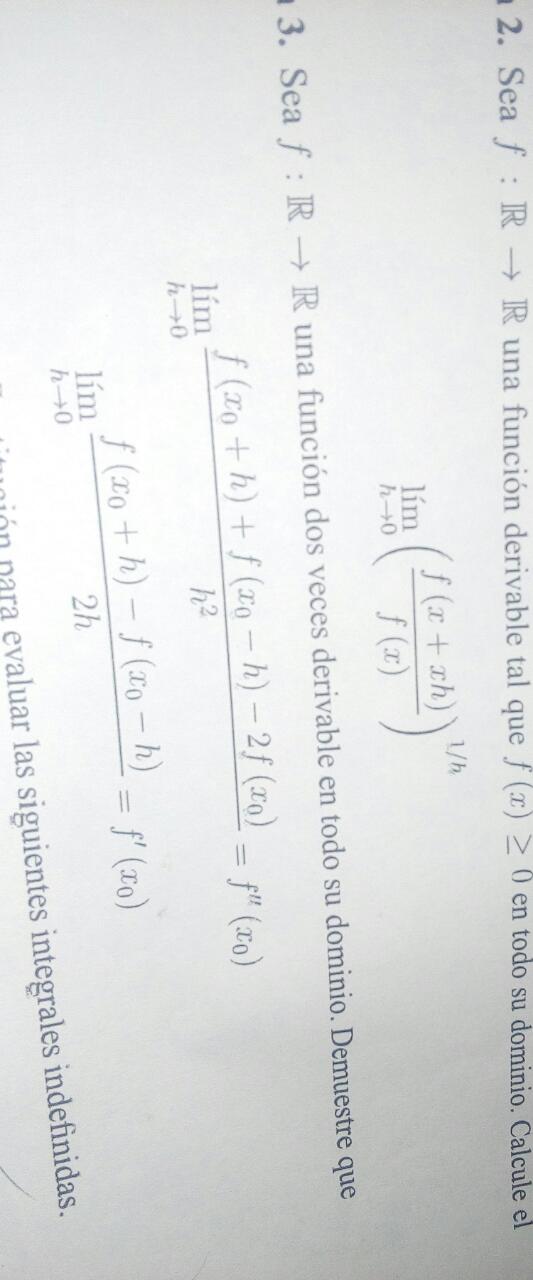 2. Sea f : ℝ → ℝ una función derivable tal que f (x) ≥ 0 en todo su dominio. Calcule el
lím h→0 (f (x + xh) / f (x))^1/h
3. Sea f : ℝ → ℝ una función dos veces derivable en todo su dominio. Demuestre que
lím h→0 f (x₀ + h) + f (x₀ − h) − 2f (x₀) / h² = f'' (x₀)
lím h→0 f (x₀ + h) − f (x₀ − h) / 2h = f' (x₀)
para evaluar las siguientes integrales indefinidas.